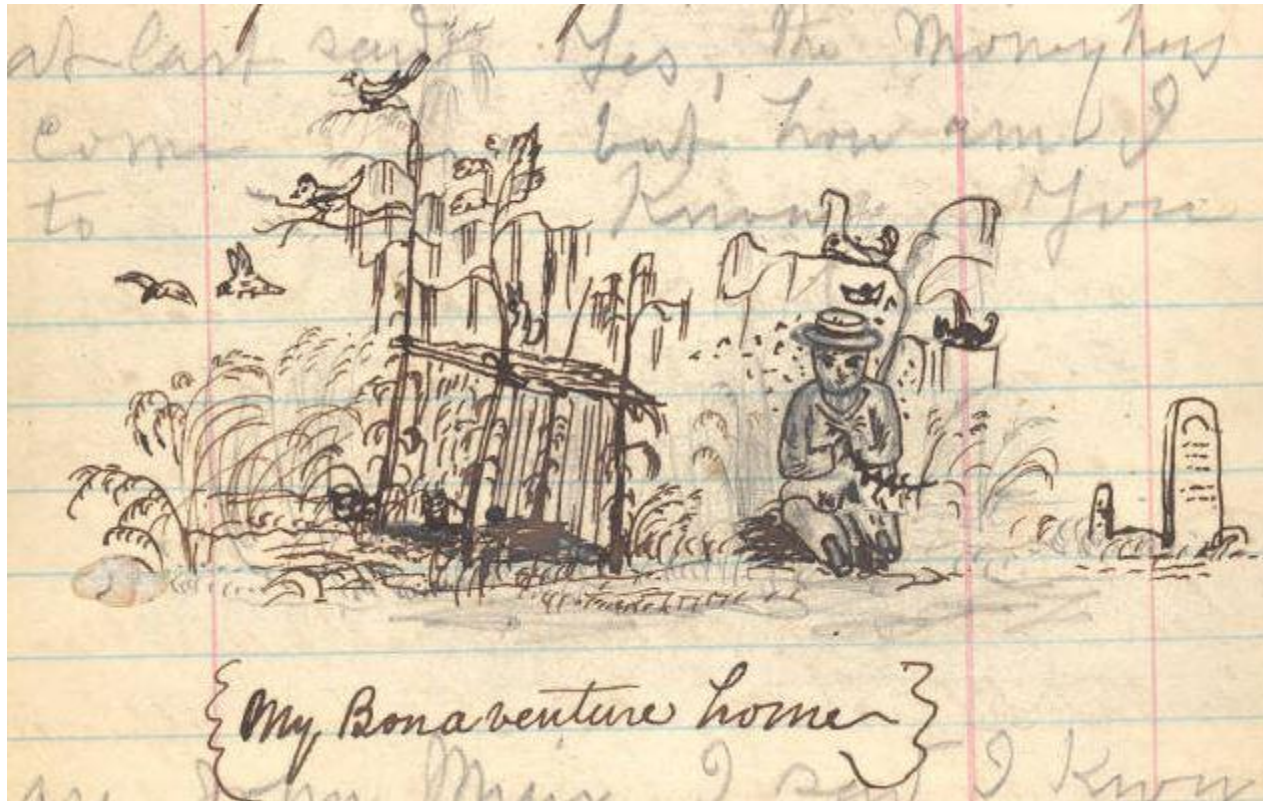 at last said, Yes, the money has
come but how am I
to Know You
{My Bonaventure home}
are John Muir I say I Know